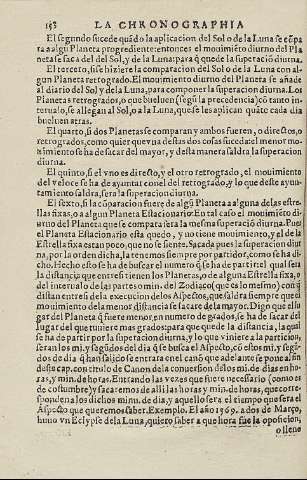 LA CHRONOGRAPHIA
El segundo sucede quādo la aplicacion del Sol o de la Luna se cōpa
ra a algun Planeta progrediente: entonces el mouimiēto diurno del Pla
neta se saca del del Sol, y de la Luna: para q̄ quede la superaciō diurna.
El tercero, si se hiziere la comparacion del Sol o de la Luna con al-
gun Planeta retrogrado. El mouimiento diurno del Planeta se añade
al diario del Sol y de la Luna, para componer la superacion diurna. Los
Planetas retrogrados, o que bueluen (segū la precedencia) cō tanto in-
terualo, se allegan al Sol, o a la Luna, que se les aplican quāto cada dia
bueluen atras.
El quarto, si dos Planetas se comparan y ambos fueren, o directos, o
retrogrados, como quier que vna destas dos cosas suceda: el menor mo-
uimiento se ha de sacar del mayor, y desta manera saldra la superacion
diurna.
El quinto, si el vno es directo, y el otro retrogrado, el mouimiento
del veloce se ha de ayuntar con el del retrogrado, y lo que deste ayun-
tamiento saldra, sera la superacion diurna.
El sexto, si la cōparacion fuere de algū Planeta a alguna de las estre-
llas fixas, o a algun Planeta Estacionario: En tal caso el mouimiēto di-
urno del Planeta que se compara sera la mesma superaciō diurna. Pues
el Planeta Estacionario esta quedo, y no tiene mouimiento, y el de la
Estrella fixa es tan poco, que no se siente. Sacada pues la superacion diur
na, por la orden dicha, la tenemos siempre por partidor, como se ha di-
cho. Hecho esto se ha de buscar el numero q̄ se ha de partir el qual sera
la distancia que entre si tienen los Planetas, o de alguna Estrella fixa, o
del interualo de las partes o min. del Zodiaco (que es lo mesmo) con q̄
distan entre si de la execucion de los Aspectos, que saldra siempre que el
mouimiento de la menor distancia se sacare de la mayor. Digo que el lu
gar del Planeta q̄ fuere menor, en numero de grados, se ha de sacar del
lugar del que tuuiere mas grados: para que quede la distancia, la qual
se ha de partir por la superacion diurna, y lo que viniere a la particion,
seran los mi. y segūdos del dia q̄ se busca el Aspecto, cō estos mi. y segū-
dos de dia q̄ han salido se entrara en el canō que adelante se pone al fin
deste cap. con titulo de Canon de la conuersion de los mi. de dias en ho-
ras, y min. de horas. Entrando las vezes que fuere necessario (como es
de costumbre) y sacaremos de alli las horas y min. de horas, que corres-
pondena los dichos minu. de dia, y aquello sera el tiempo que sera el
Aspecto que queremos saber. Exemplo. El año 1569. a dos de Março,
huuo vn Eclypse de la Luna, quiero saber a que hora fue la oposicion,
o lleno